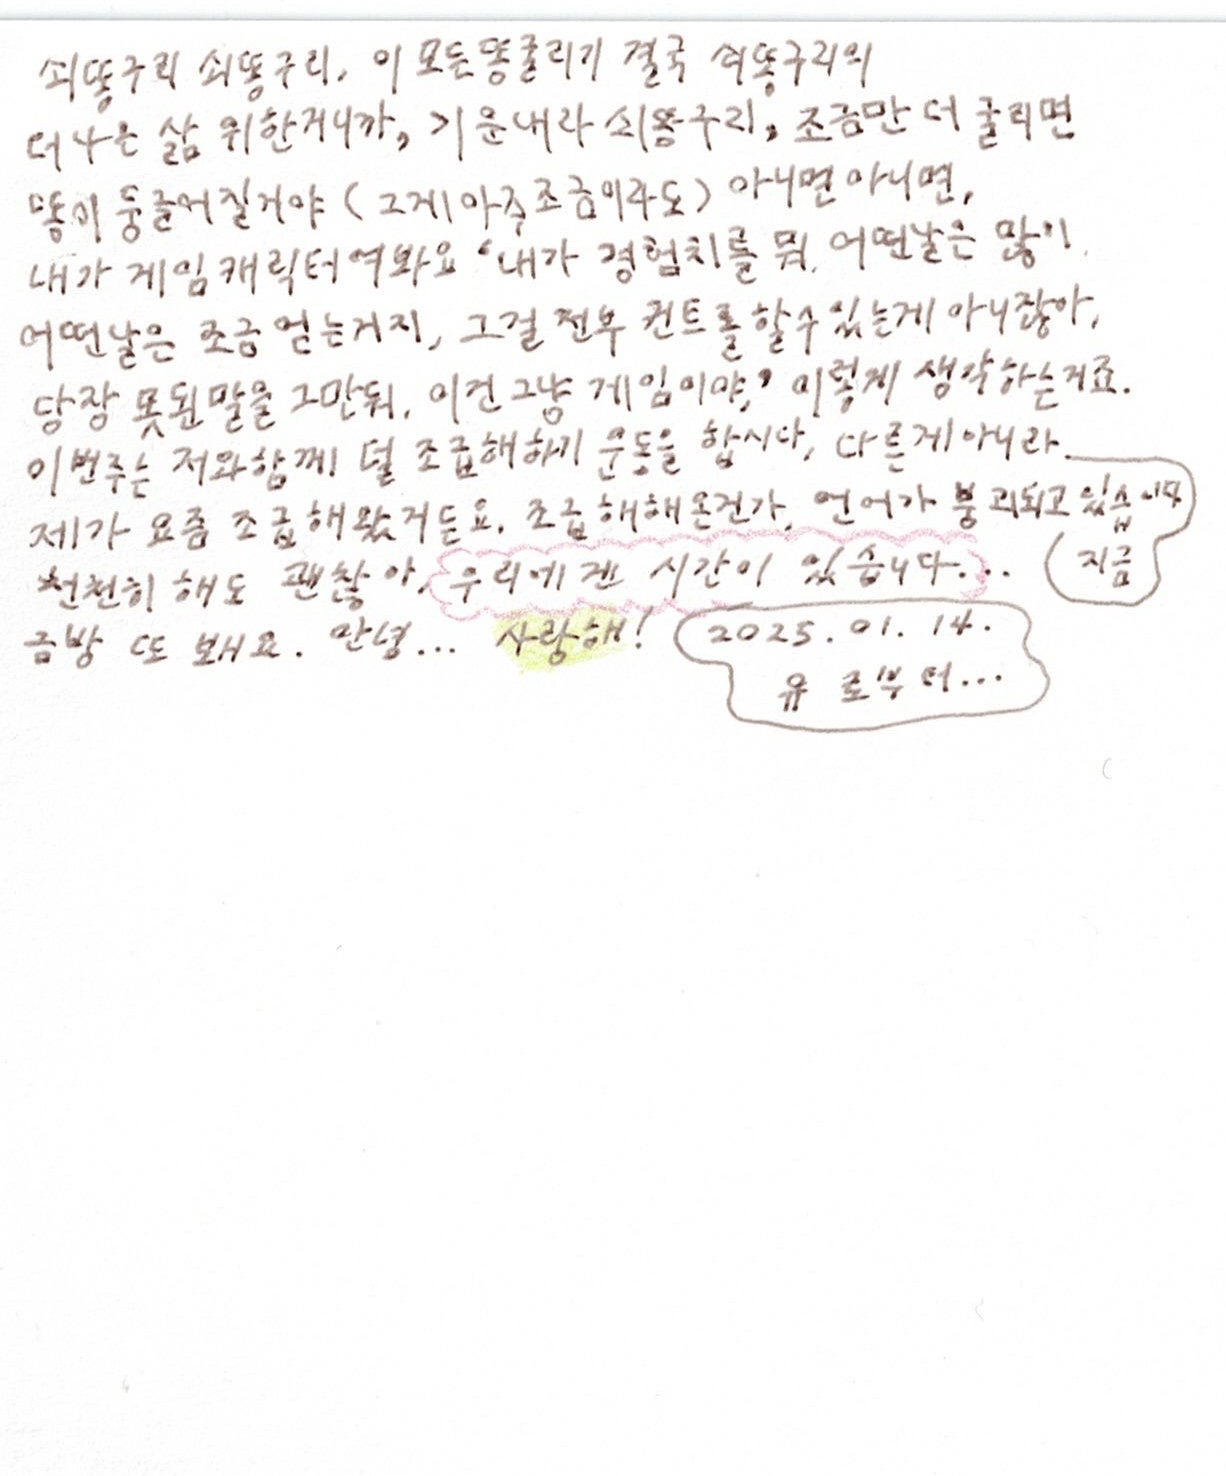 쇠똥구리 쇠똥구리, 이 모든똥굴리기 결국 쇠똥구리의
더 나은 삶 위한거니까, 기운내라 쇠똥구리, 조금만 더 굴리면
똥이 둥글어질거야 (그게 아주 조금이라도) 아니면 아니면,
내가 게임캐릭터여봐요 '내가 경험치를 뭐, 어떤날은 많이,
어떤날은 조금 얻는거지, 그걸 전부 컨트롤 할수 있는게 아니잖아,
당장 못된말을 그만둬, 이건 그냥 게임이야,' 이렇게 생각하는거죠.
이번주는 저와함께 덜 조급해하기 운동을 합시다, 다른게 아니라
제가 요즘 조급해왔거든요. 조급해해온건가, 언어가 붕괴되고 있습니다
지금
천천히 해도 괜찮아, 우리에겐 시간이 있습니다...
금방 또 봬요. 안녕... 사랑해!
2025.01.14.
유 로부터...